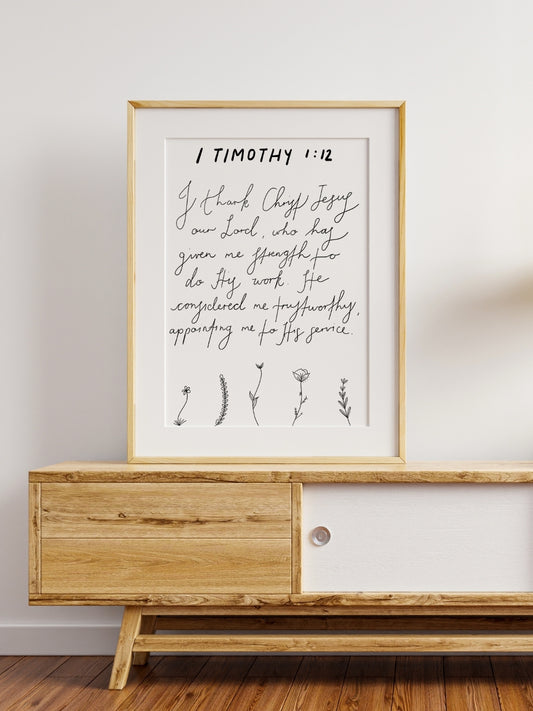 1 TIMOTHY 1:12
I thank Christ Jesus
our Lord, who has
given me strength to
do His work. He
considered me trustworthy,
appointing me to His service.